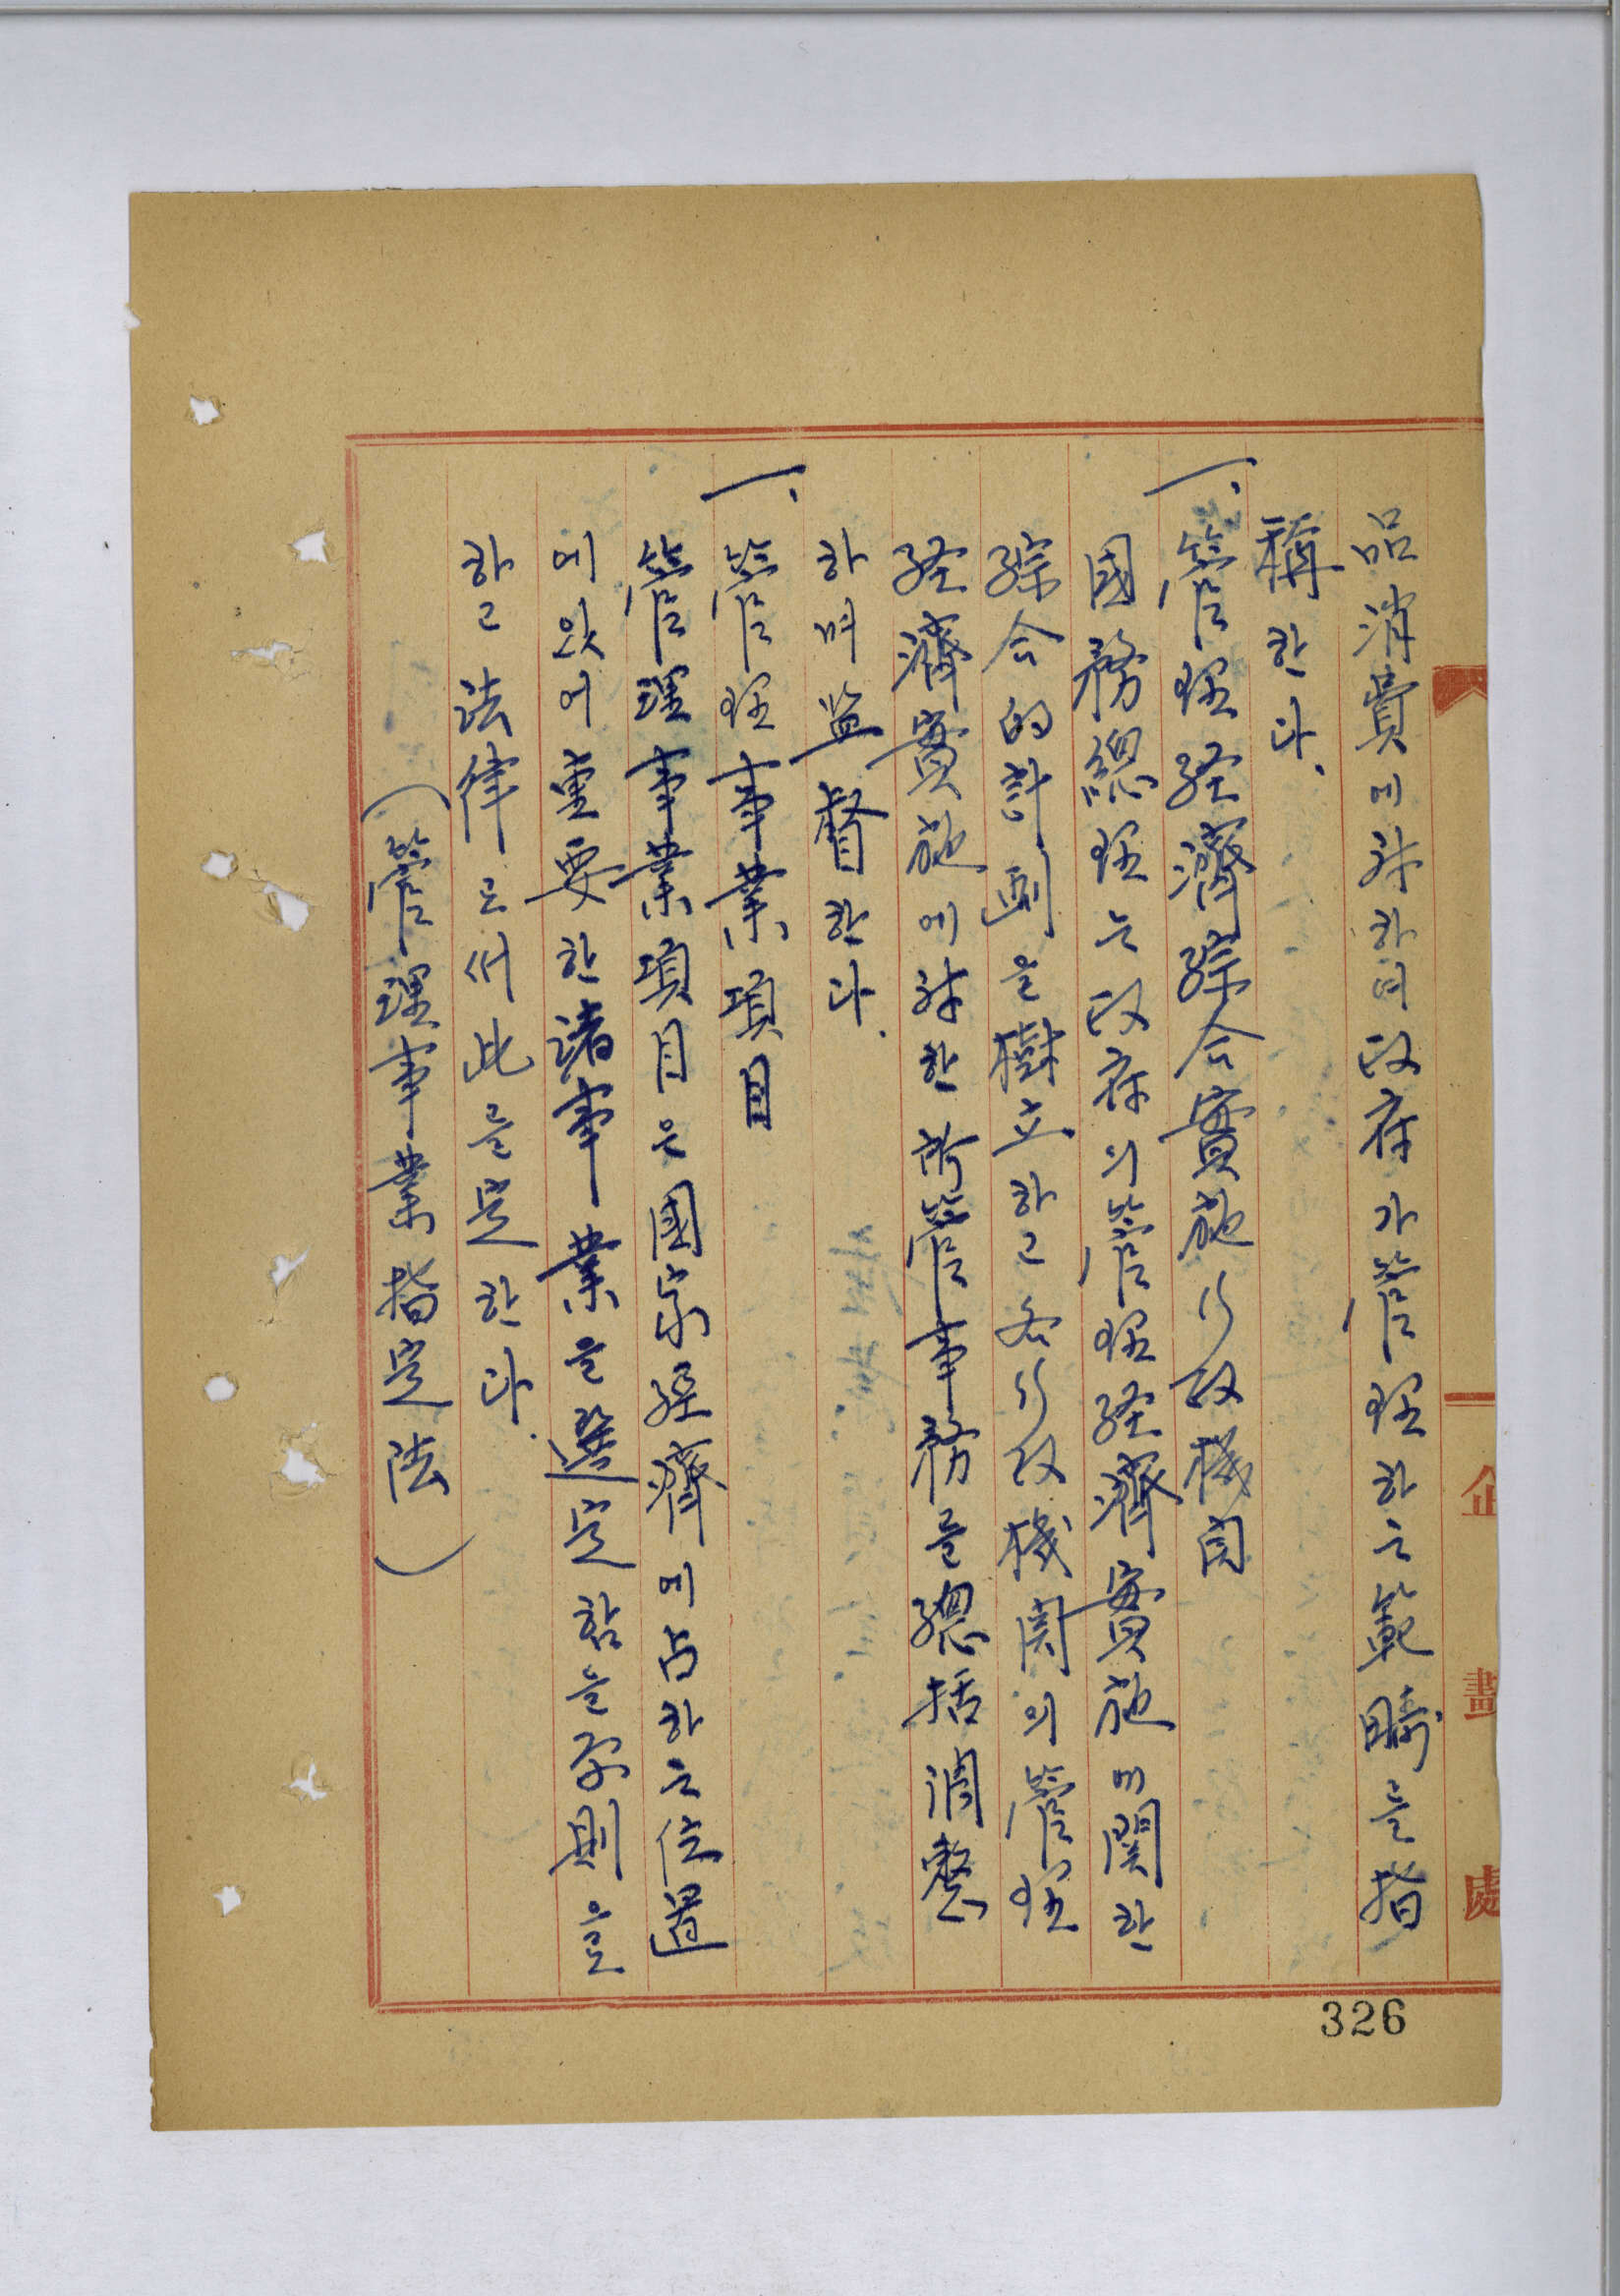 品消費에對하여政府가管理하는範疇를指
稱한다.
一. 管理経濟綜合實施行政機関
國務總理는政府의管理経濟實施에関한
綜合的計劃을樹立하고各行政機関의管理
経濟實施에對한所管事務를總括調整
하며監督한다.
一. 管理事業項目
管理事業項目은國家経濟에占하는位置
에있어重要한諸事業을選定함을原則으로
하고法律로써此를定한다.
(管理事業指定法)
企畫處
326